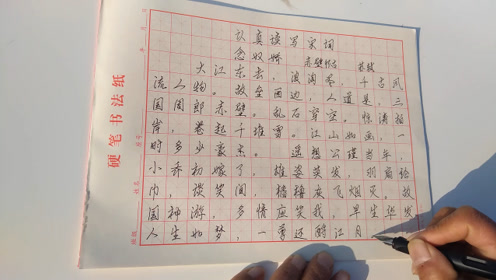 硬笔书法纸
认真读写宋词
念奴娇 赤壁怀古 苏轼
大江东去，浪淘尽，千古风
流人物。故垒西边，人道是，三
国周郎赤壁。乱石穿空，惊涛拍
岸，卷起千堆雪。江山如画，一
时多少豪杰。遥想公瑾当年，
小乔初嫁了，雄姿英发，羽扇纶
巾，谈笑间，樯橹灰飞烟灭。故
国神游，多情应笑我，早生华发
人生如梦，一尊还酹江月